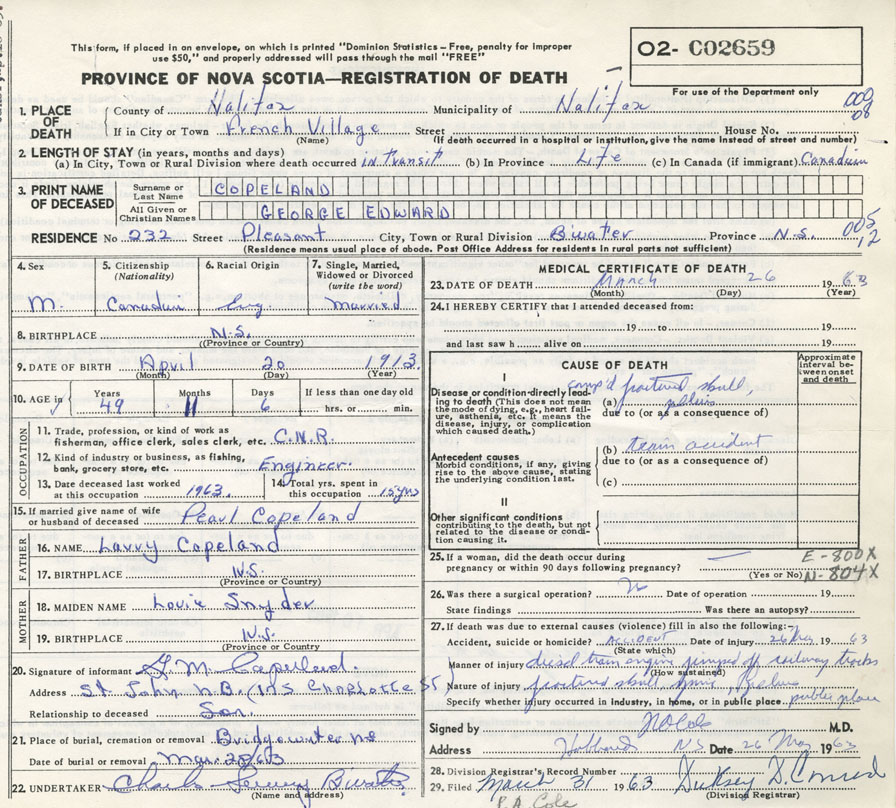 This form, if placed in an envelope, on which is printed "Dominion Statistics – Free, penalty for improper
use $50," and properly addressed will pass through the mail "FREE"
O2- C02659
PROVINCE OF NOVA SCOTIA—REGISTRATION OF DEATH
For use of the Department only
1. PLACE OF DEATH County of Halifax Municipality of Halifax 009
If in City or Town French Village Street House No. 08
(Name) (If death occurred in a hospital or institution, give the name instead of street and number)
2. LENGTH OF STAY (in years, months and days)
(a) In City, Town or Rural Division where death occurred in transit (b) In Province Life (c) In Canada (if immigrant) Canadian
3. PRINT NAME OF DECEASED Surname or Last Name COPELAND
All Given or Christian Names GEORGE EDWARD
005
RESIDENCE No 232 Street Pleasant City, Town or Rural Division B'water Province N.S. 12
(Residence means usual place of abode. Post Office Address for residents in rural parts not sufficient)
4. Sex 5. Citizenship (Nationality) 6. Racial Origin 7. Single, Married, Widowed or Divorced (write the word)
M. Canadian Eng. Married
8. BIRTHPLACE N.S.
(Province or Country)
9. DATE OF BIRTH April 20 1913
(Month) (Day) (Year)
10. AGE in Years Months Days If less than one day old
49 11 6 hrs. or min.
OCCUPATION
11. Trade, profession, or kind of work as
fisherman, office clerk, sales clerk, etc. C.N.R.
12. Kind of industry or business, as fishing,
bank, grocery store, etc. Engineer.
13. Date deceased last worked 14. Total yrs. spent in
at this occupation 1963. this occupation 15 yrs
15. If married give name of wife
or husband of deceased Pearl Copeland
FATHER
16. NAME Larry Copeland
17. BIRTHPLACE N.S.
(Province or Country)
MOTHER
18. MAIDEN NAME Lovie Snyder
19. BIRTHPLACE N.S.
(Province or Country)
20. Signature of informant G. M. Copeland.
Address St. John N.B. (175 Charlotte St)
Relationship to deceased Son.
21. Place of burial, cremation or removal Bridgewater NS
Date of burial or removal Mar. 28/63
22. UNDERTAKER B'water
(Name and address)
MEDICAL CERTIFICATE OF DEATH
23. DATE OF DEATH March 26 1963
(Month) (Day) (Year)
24. I HEREBY CERTIFY that I attended deceased from:
19 to 19
and last saw h alive on 19
CAUSE OF DEATH
Approximate interval between onset and death
I
Disease or condition directly leading to death (This does not mean the mode of dying, e.g., heart failure, asthenia, etc. It means the disease, injury, or complication which caused death.)
(a) comp'd fractured skull, pelvis
due to (or as a consequence of)
Antecedent causes
Morbid conditions, if any, giving rise to the above cause, stating the underlying condition last.
(b) train accident
due to (or as a consequence of)
(c)
II
Other significant conditions
contributing to the death, but not related to the disease or condition causing it.
25. If a woman, did the death occur during
pregnancy or within 90 days following pregnancy?
(Yes or No)
E-800X
N-804X
26. Was there a surgical operation? No Date of operation 19
State findings Was there an autopsy?
27. If death was due to external causes (violence) fill in also the following:-
Accident, suicide or homicide? ACCIDENT Date of injury 26 Mar 1963
(State which)
Manner of injury diesel train engine jumped off railway tracks
(How sustained)
Nature of injury fractured skull, spine, Pelvis
Specify whether injury occurred in industry, in home, or in public place public place
Signed by M.D.
Address Hubbards NS Date 26 Mar 1963
28. Division Registrar's Record Number
29. Filed March 31 1963 D. Conrad
(Division Registrar)
P.A. Cole